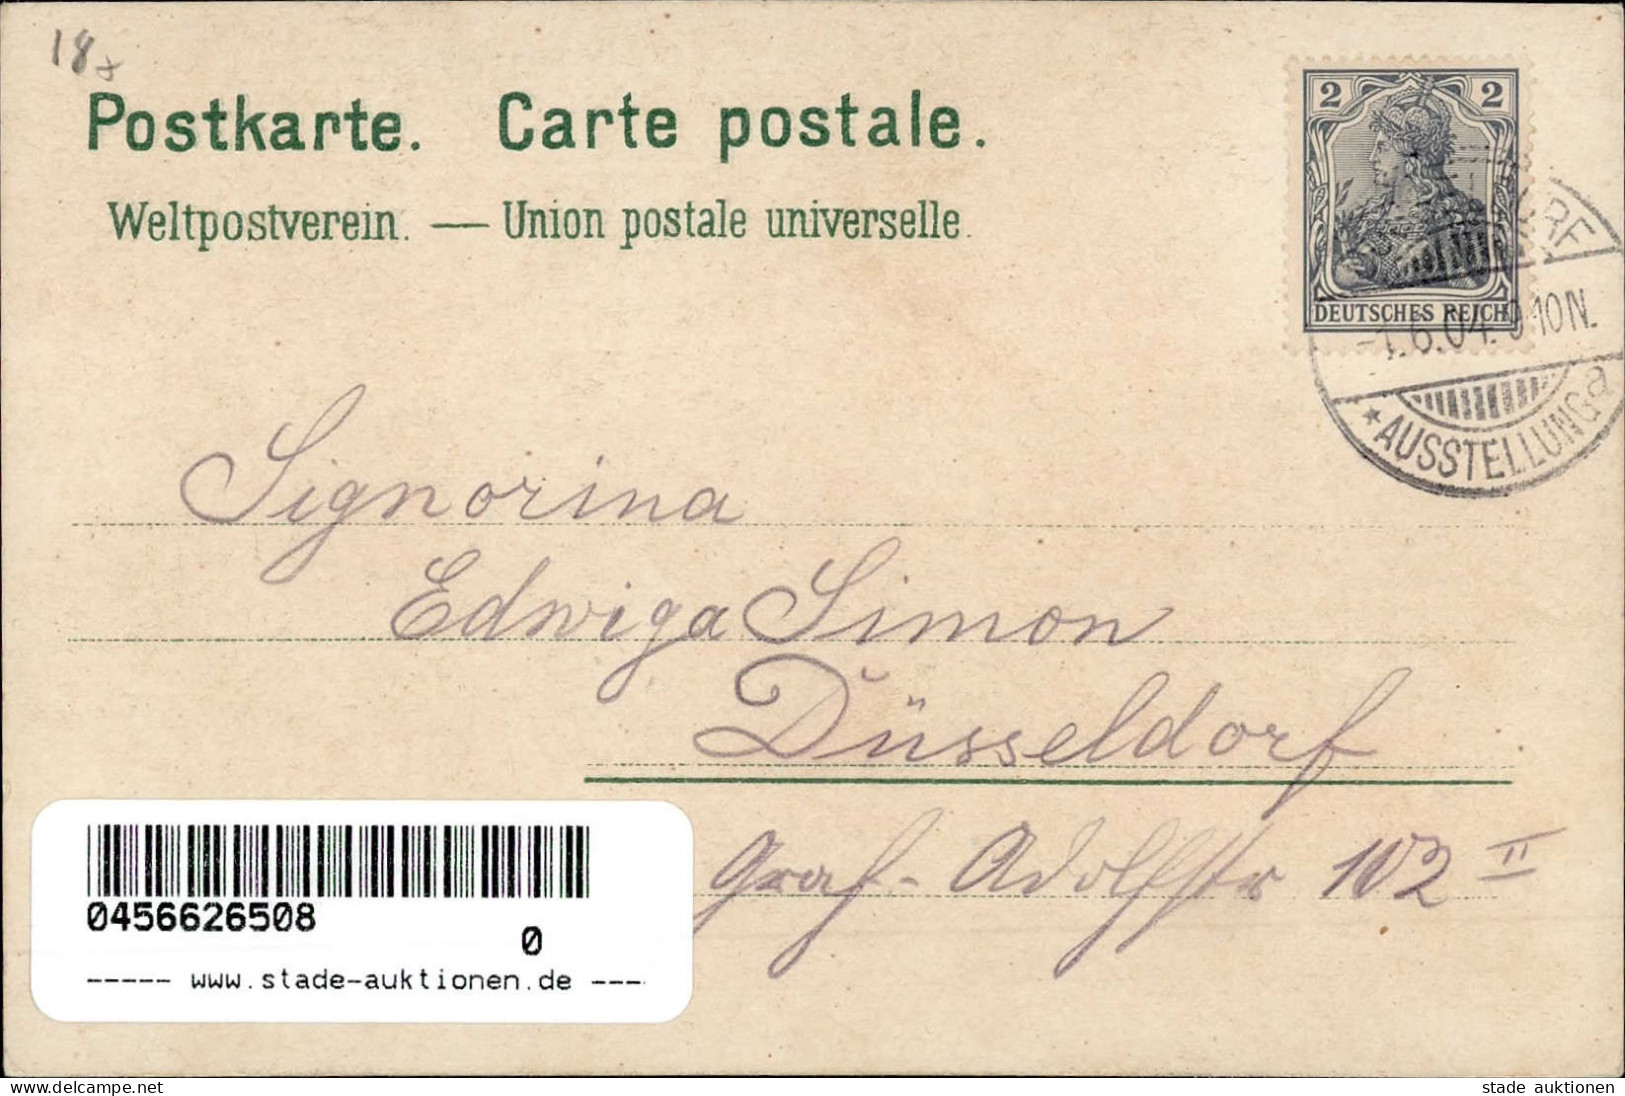 18
Postkarte. Carte postale.
Weltpostverein. — Union postale universelle.
2 2
DEUTSCHES REICH
DORF
-1.6.04. 9-10N.
*AUSSTELLUNG a
Signorina
Edwiga Simon
Düsseldorf
Graf-Adolfstr 102 II
0456626508
0
----- www.stade-auktionen.de ---
www.delcampe.net
stade auktionen